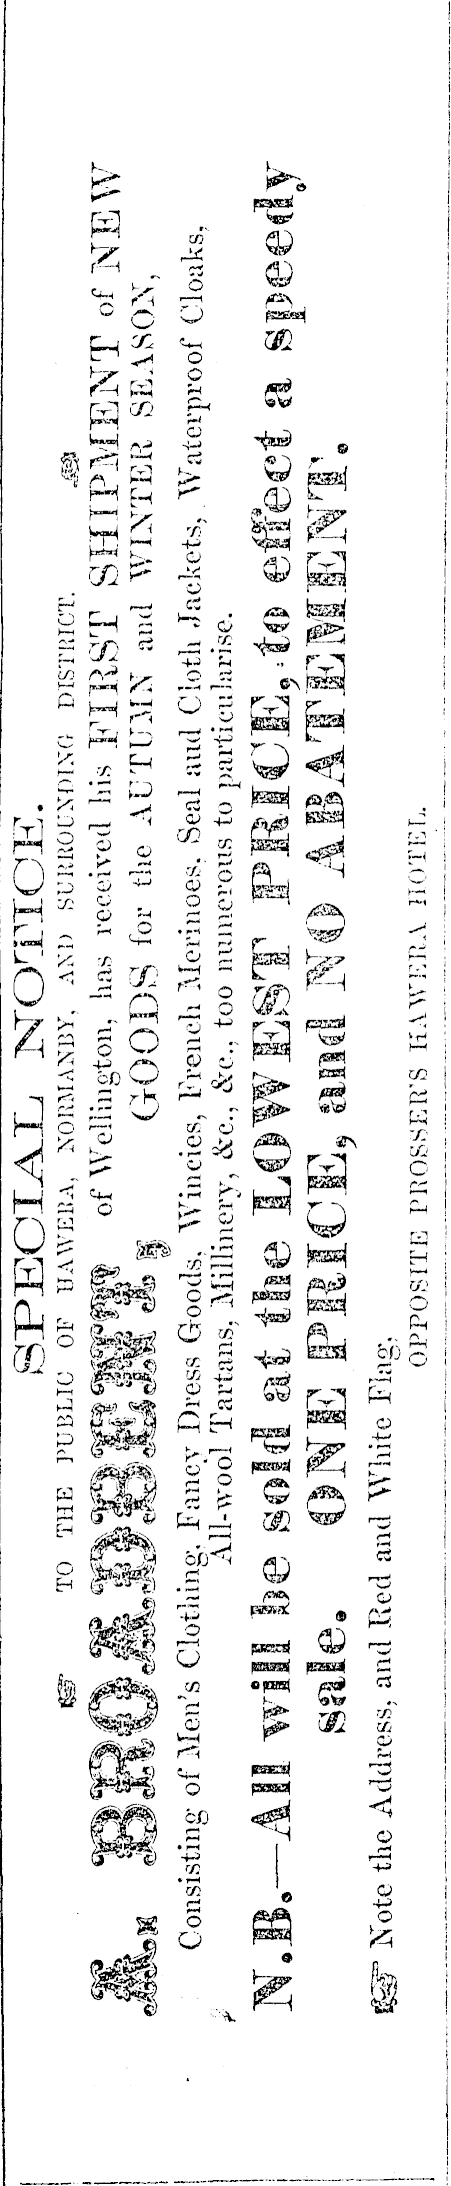 SPECIAL NOTICE.
TO THE PUBLIC OF HAWERA, NORMANBY, AND SURROUNDING DISTRICT.
A. BROADBENT, of Wellington, has received his FIRST SHIPMENT of NEW
GOODS for the AUTUMN and WINTER SEASON,
Consisting of Men's Clothing, Fancy Dress Goods, Wincies, French Merinoes, Seal and Cloth Jackets, Waterproof Cloaks,
All-wool Tartans, Millinery, &c., &c., too numerous to particularise.
N.B.—All will be sold at the LOWEST PRICE, to effect a speedy
sale. ONE PRICE, and NO ABATEMENT.
☞ Note the Address, and Red and White Flag,
OPPOSITE PROSSER'S HAWERA HOTEL.